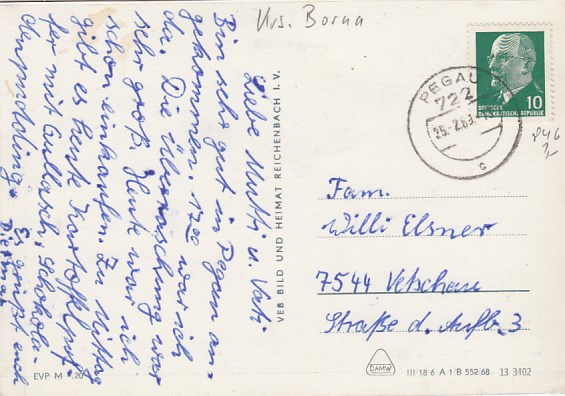 Krs. Borna
Liebe Mutti u. Vati
Bin sehr gut in Pegau an-
gekommen. 17⁰⁰ war ich
da. Die Überraschung war
sehr groß. Heute war ich
schon einkaufen. Zu Mittag
gibt es heute Kartoffelpuf-
fer mit Gullasch, Schokola-
denpudding.
Es grüßt euch
Dietmar
VEB BILD UND HEIMAT REICHENBACH I. V.
PEGAU
722
25.-2.69
c
DEUTSCHE
DEMOKRATISCHE REPUBLIK
10
P46
Fam.
Willi Elsner
7544 Vetschau
Straße d. Aufb. 3
EVP M -.20
DAMW
III 18 6 A 1 B 552/68 13 3402